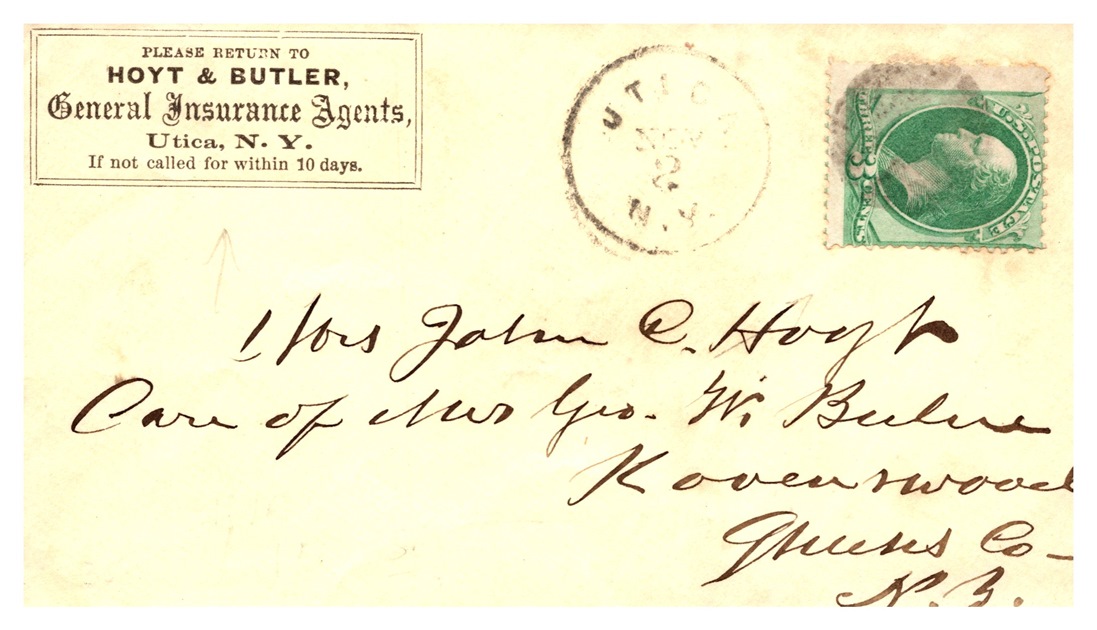 PLEASE RETURN TO
HOYT & BUTLER,
General Insurance Agents,
Utica, N. Y.
If not called for within 10 days.
UTICA
NOV
2
N.Y.
U.S. POSTAGE
THREE 3 CENTS
Mrs John C. Hoyt
Care of Mrs Geo. W.
Ravenswood
Queens Co-
N.Y.